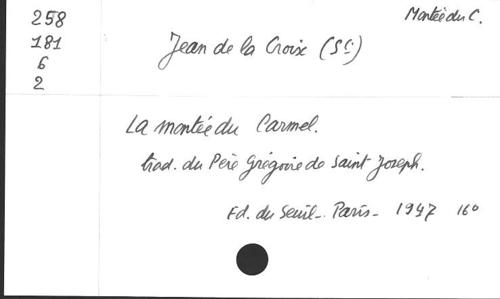 258
181
6
2
Montée du C.
Jean de la Croix (St)
La montée du Carmel.
trad. du Père Grégoire de Saint Joseph.
Ed. du Seuil - Paris - 1947 16°